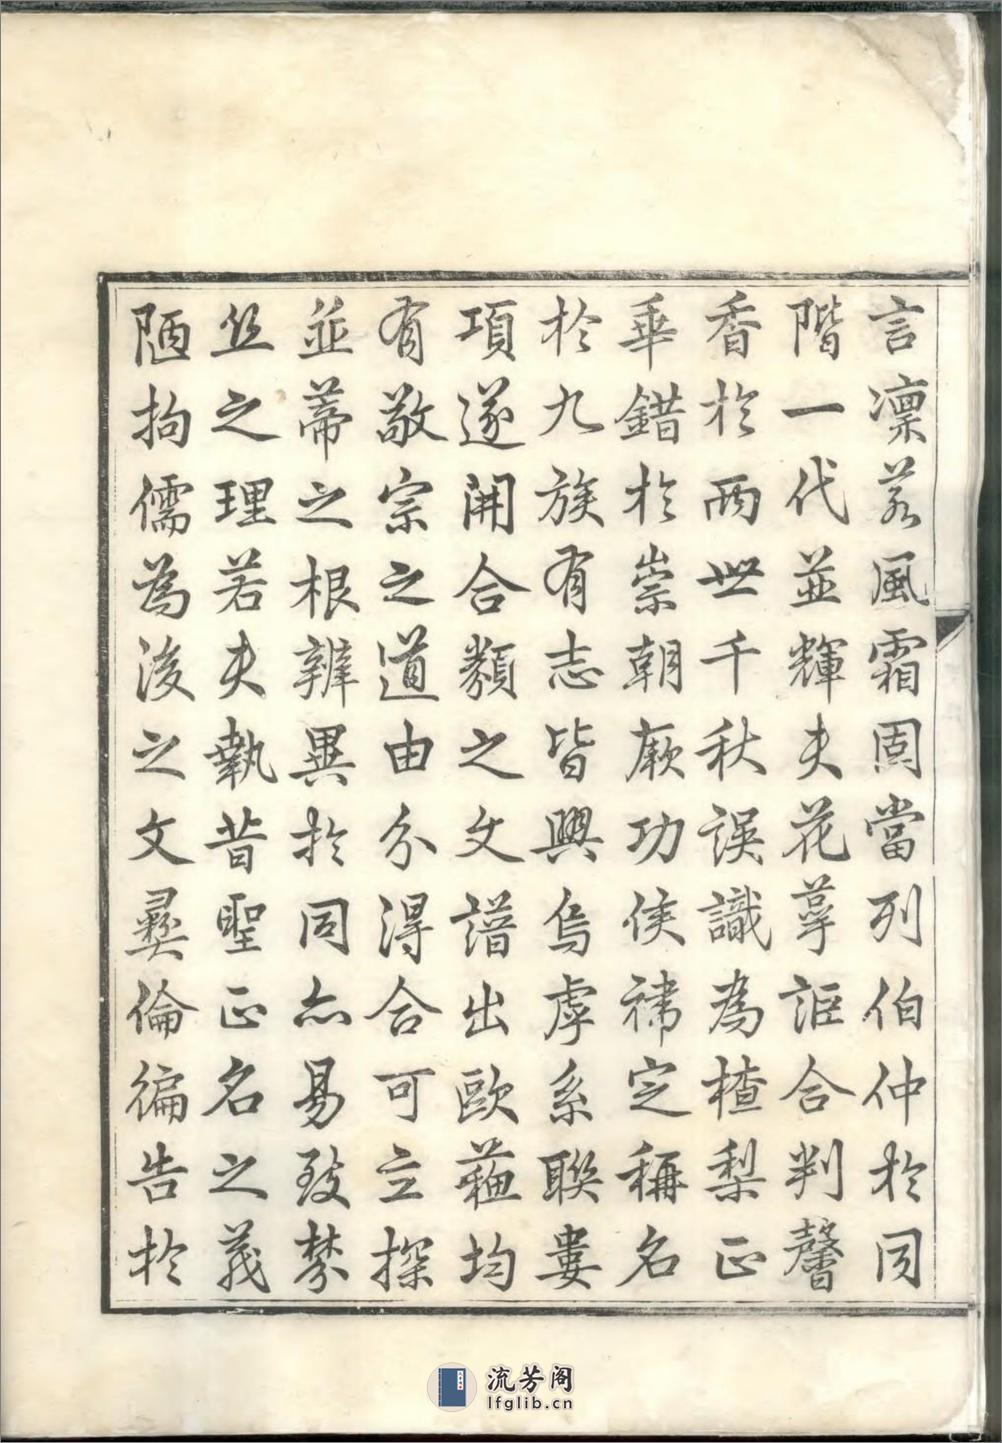 言凛若風霜固當列伯仲於同
階一代並輝夫花萼詎合判馨
香於兩世千秋誤識為楂梨正
華錯於崇朝厥功侯禕定稱名
於九族有志皆興烏虖系聯婁
項遂開合類之文譜出歐蘇均
有敬宗之道由分得合可立探
並蒂之根辨異於同亦易致棼
丝之理若夫執昔聖正名之義
陋拘儒為後之文彝倫徧告於
流芳阁
lfglib.cn